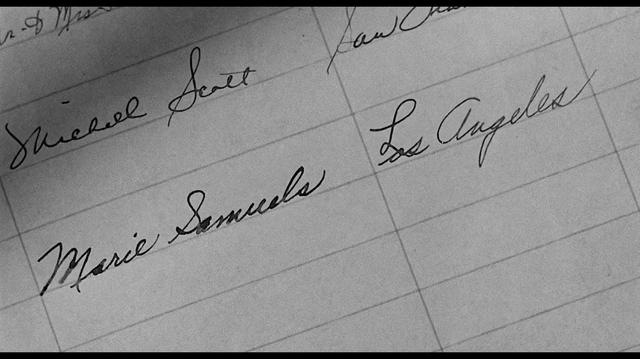 & Mrs
Michell Scott San
Marie Samuels Los Angeles